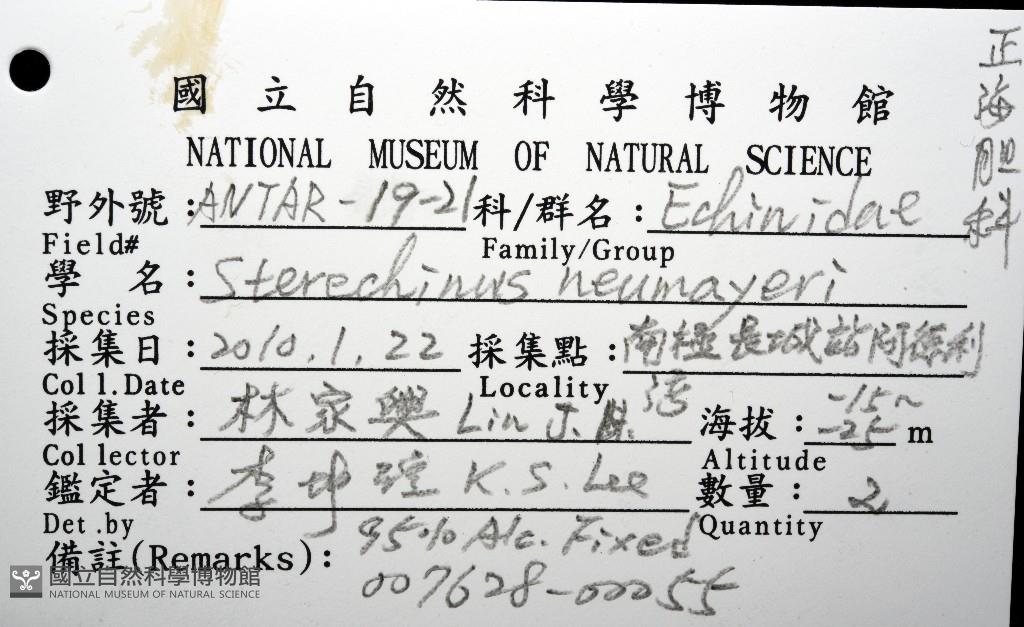 國立自然科學博物館
NATIONAL MUSEUM OF NATURAL SCIENCE
正海胆科
野外號:ANTAR-19-21 科/群名:Echinidae
Field# Family/Group
學 名:Sterechinus neumayeri
Species
採集日:2010.1.22 採集點:南極長城站阿德利
Coll.Date Locality 湾
採集者:林家興 Lin J.H. 海拔:-15~-25 m
Collector Altitude
鑑定者:李坤瑄 K.S. Lee 數量:2
Det.by Quantity
備註(Remarks): 95% Alc. Fixed
007628-00055
國立自然科學博物館
NATIONAL MUSEUM OF NATURAL SCIENCE